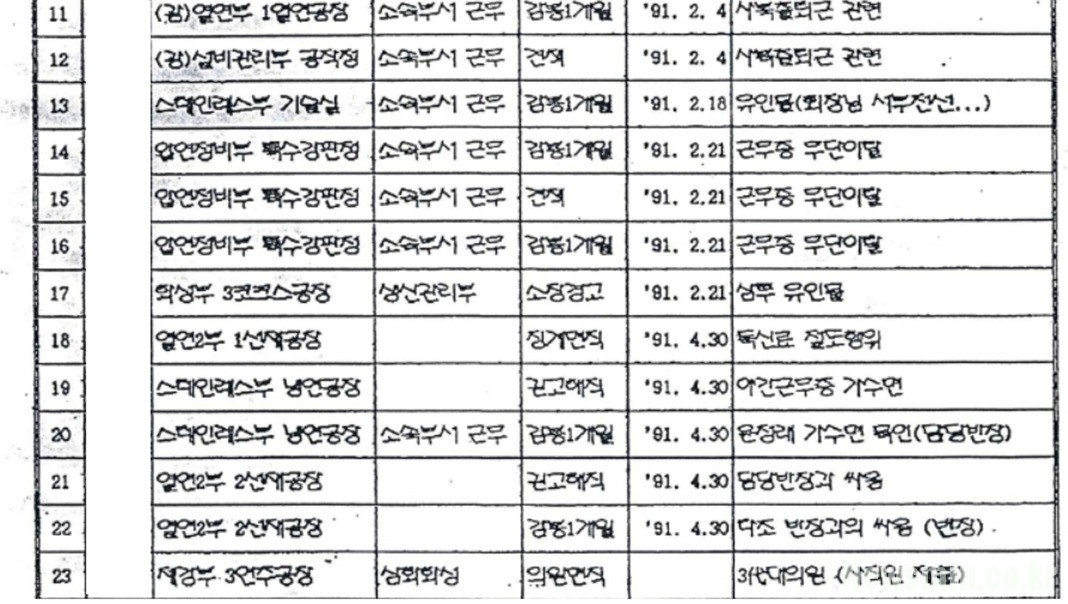 11 (광)열연부 1열연공장 소속부서 근무 감봉1개월 '91. 2. 4 사복출퇴근 관련
12 (광)설비관리부 공작정 소속부서 근무 견책 '91. 2. 4 사복출퇴근 관련
13 스테인레스부 기술실 소속부서 근무 감봉1개월 '91. 2.18 유인물(회장님 서부전선...)
14 압연정비부 특수강판정 소속부서 근무 감봉1개월 '91. 2.21 근무중 무단이탈
15 압연정비부 특수강판정 소속부서 근무 견책 '91. 2.21 근무중 무단이탈
16 압연정비부 특수강판정 소속부서 근무 감봉1개월 '91. 2.21 근무중 무단이탈
17 화성부 3코크스공장 생산관리부 소장경고 '91. 2.21 삼투 유인물
18 열연2부 1선재공장 징계면직 '91. 4.30 독신료 절도행위
19 스테인레스부 냉연공장 권고해직 '91. 4.30 야간근무중 가수면
20 스테인레스부 냉연공장 소속부서 근무 감봉1개월 '91. 4.30 가수면 묵인(담당반장)
21 열연2부 2선재공장 권고해직 '91. 4.30 담당반장과 싸움
22 열연2부 2선재공장 감봉1개월 '91. 4.30 타조 반장과의 싸움 (반장)
23 제강부 3연주공장 삼화화성 의원면직 3代대의원